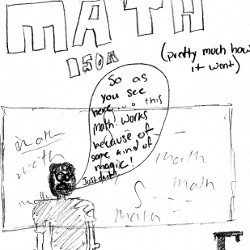 MATH
150A
(pretty much how
it went)
So as
you see
here... this
math works
because of
some kind of
magic!
Just do it!
math
math
math
math
math
math